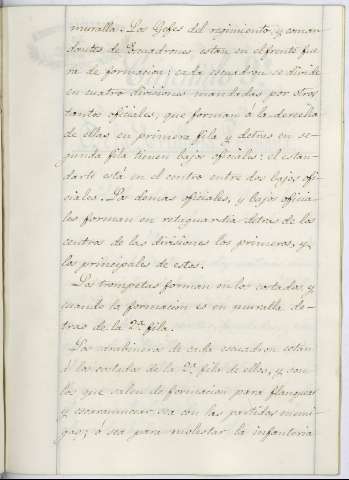 muralla. Los Gefes del regimiento, y coman
drutes de Escuadrones estan en el frente fue
ra de formacion; cada escuadron se divide
en cuatro divisiones mandadas por otros
tantos oficiales, que forman á la derecha
de ellas en primera fila y detras en se-
gunda fila tienen bajos oficiales: el estan-
darte está en el centro entre dos bajos ofi-
ciales. Los demas oficiales, y bajos oficia-
les forman en retiguardia detras de los
centros de las divisiones los primeros, y
los principales de estos.
Los trompetas forman en los costados, y
cuando la formacion es en muralla de-
tras de la 2.ª fila.
Los carabineros de cada escuadron estan
á los costados de la 2.ª fila de ellos, y son
los que salen de formacion para flanquear
y escaramucear sea con las partidas enemi
gas; ó sea para molestar la infanteria